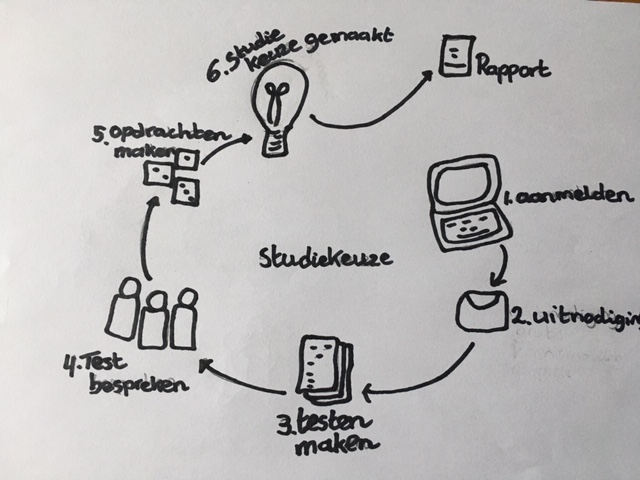 6. Studie
keuze gemaakt
Rapport
5. opdrachten
maken
1. aanmelden
Studiekeuze
2. uitnodiging
4. Test
bespreken
3. testen
maken